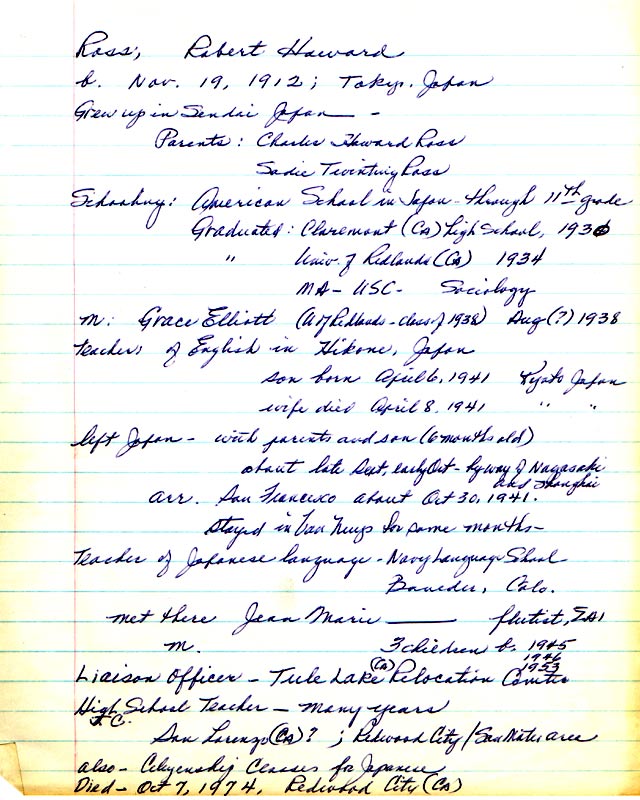 Ross, Robert Howard
b. Nov. 19, 1912; Tokyo, Japan
Grew up in Sendai Japan — -
Parents: Charles Howard Ross
Sadie Twinting Ross
Schooling: American School in Japan - through 11th grade
Graduated: Claremont (Ca) High School, 1930
" Univ. of Redlands (Ca) 1934
MA - USC - Sociology
m: Grace Elliott (U of Redlands - class of 1938) Aug (?) 1938
Teachers of English in Hikone, Japan
son born April 6, 1941 Kyoto Japan
wife died April 8, 1941 " "
left Japan - with parents and son (6 months old)
about late Sept, early Oct - by way of Nagasaki
and Shanghai
arr. San Francisco about Oct 30, 1941.
Stayed in Van Nuys for some months -
Teacher of Japanese language - Navy Language School
Boulder, Colo.
met there Jean Marie —— flutist, ΣAI
m. 3 children b. 1945
1946
1953
Liaison Officer - Tule Lake (Ca) Relocation Center
High School Teacher - many years
J.C.
San Lorenzo (Ca)? ; Redwood City/San Mateo area
also - Citizenship Classes for Japanese
Died - Oct 7, 1974, Redwood City (Ca)